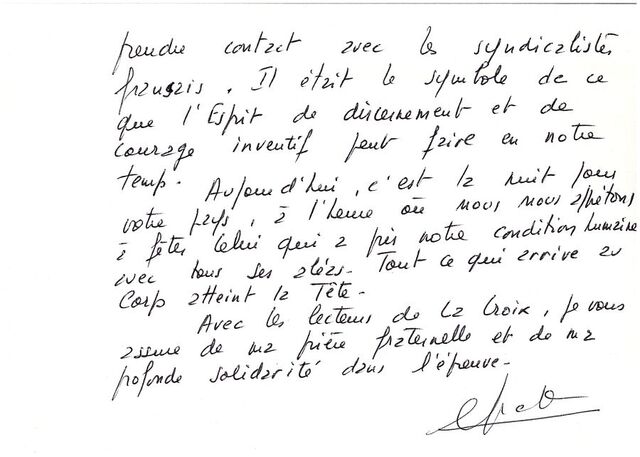 prendre contact avec les syndicalistes
français. Il était le symbole de ce
que l'Esprit de discernement et de
courage inventif peut faire en notre
temp. Aujourd'hui, c'est la nuit pour
votre pays, à l'heure où nous nous apprêtons
à fêter Celui qui a pris notre condition humaine
avec tous ses aléas. Tout ce qui arrive au
Corps atteint la Tête.
Avec les lecteurs de La Croix, je vous
assure de ma prière fraternelle et de ma
profonde solidarité dans l'épreuve.